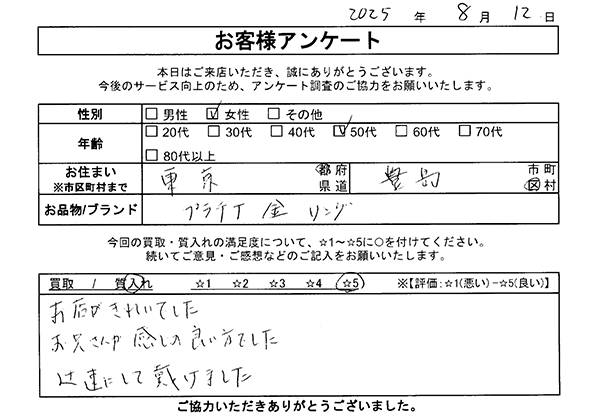 2025 年 8 月 12 日
お客様アンケート
本日はご来店いただき、誠にありがとうございます。
今後のサービス向上のため、アンケート調査のご協力をお願いいたします。
性別 □ 男性 ☑ 女性 □ その他
年齢 □ 20代 □ 30代 □ 40代 ☑ 50代 □ 60代 □ 70代
□ 80代以上
お住まい 東京 都府 豊島 市町
※市区町村まで 県道 区村
お品物/ブランド プラチナ 金 リング
今回の買取・質入れの満足度について、☆1～☆5に○を付けてください。
続いてご意見・ご感想などのご記入をお願いいたします。
買取 / 質入れ ☆1 ☆2 ☆3 ☆4 ☆5 ※【評価:☆1(悪い)-☆5(良い)】
お店がきれいでした
お兄さんが感じの良い方でした
迅速にして戴けました
ご協力いただきありがとうございました。